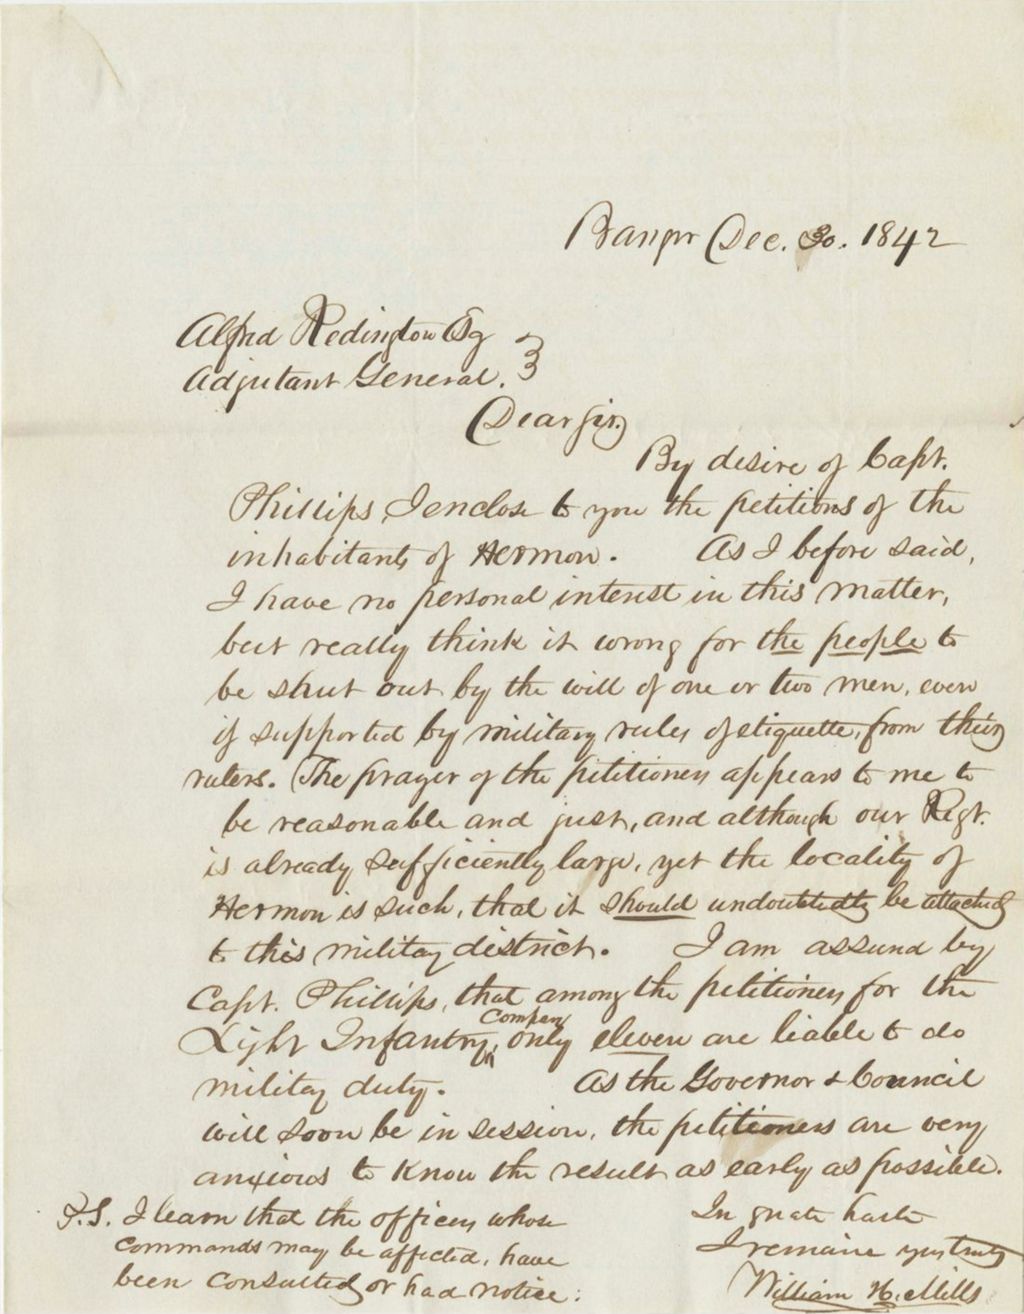 Bangor Dec. 30. 1842
Alfred Redington Esq
Adjutant General.
Dear Sir,
By desire of Capt.
Phillips, I enclose to you the petitions of the
inhabitants of Hermon. As I before said,
I have no personal interest in this matter,
but really think it wrong for the people to
be shut out by the will of one or two men, even
if supported by military rules of etiquette, from their
rulers. The prayer of the petitioners appears to me to
be reasonable and just, and although our Regt.
is already sufficiently large, yet the locality of
Hermon is such, that it should undoubtedly be attached
to this military district. I am assured by
Capt. Phillips, that among the petitioners for the
Light Infantry Company, only eleven are liable to do
military duty. As the Governor & Council
will soon be in session, the petitioners are very
anxious to know the result as early as possible.
In great haste
I remain yours truly
William H. Mills
P.S. I learn that the officers whose
commands may be affected, have
been consulted or had notice.